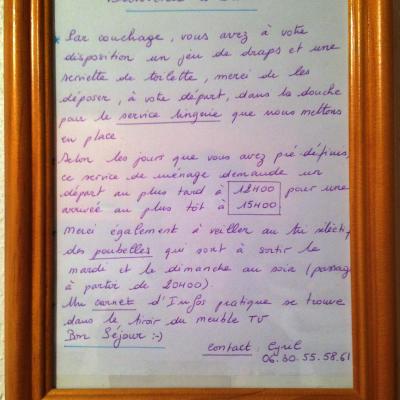 * Par couchage, vous avez à votre
disposition un jeu de draps et une
serviette de toilette, merci de les
déposer, à votre départ, dans la douche
pour le service lingerie que nous mettons
en place.
Selon les jours que vous avez pré-définis,
ce service de ménage demande un
départ au plus tard à 12H00 pour une
arrivée au plus tôt à 15H00
Merci également à veiller au tri sélectif,
des poubelles qui sont à sortir le
mardi et le dimanche au soir (passage
à partir de 20H00).
Un carnet d'Infos pratique se trouve
dans le tiroir du meuble TV
Bon Séjour :-)
contact : Cyril
06.30.55.58.61